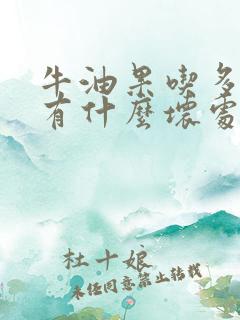 牛油果喫多
有什麼壞處
杜十娘
未任同意禁止轉載